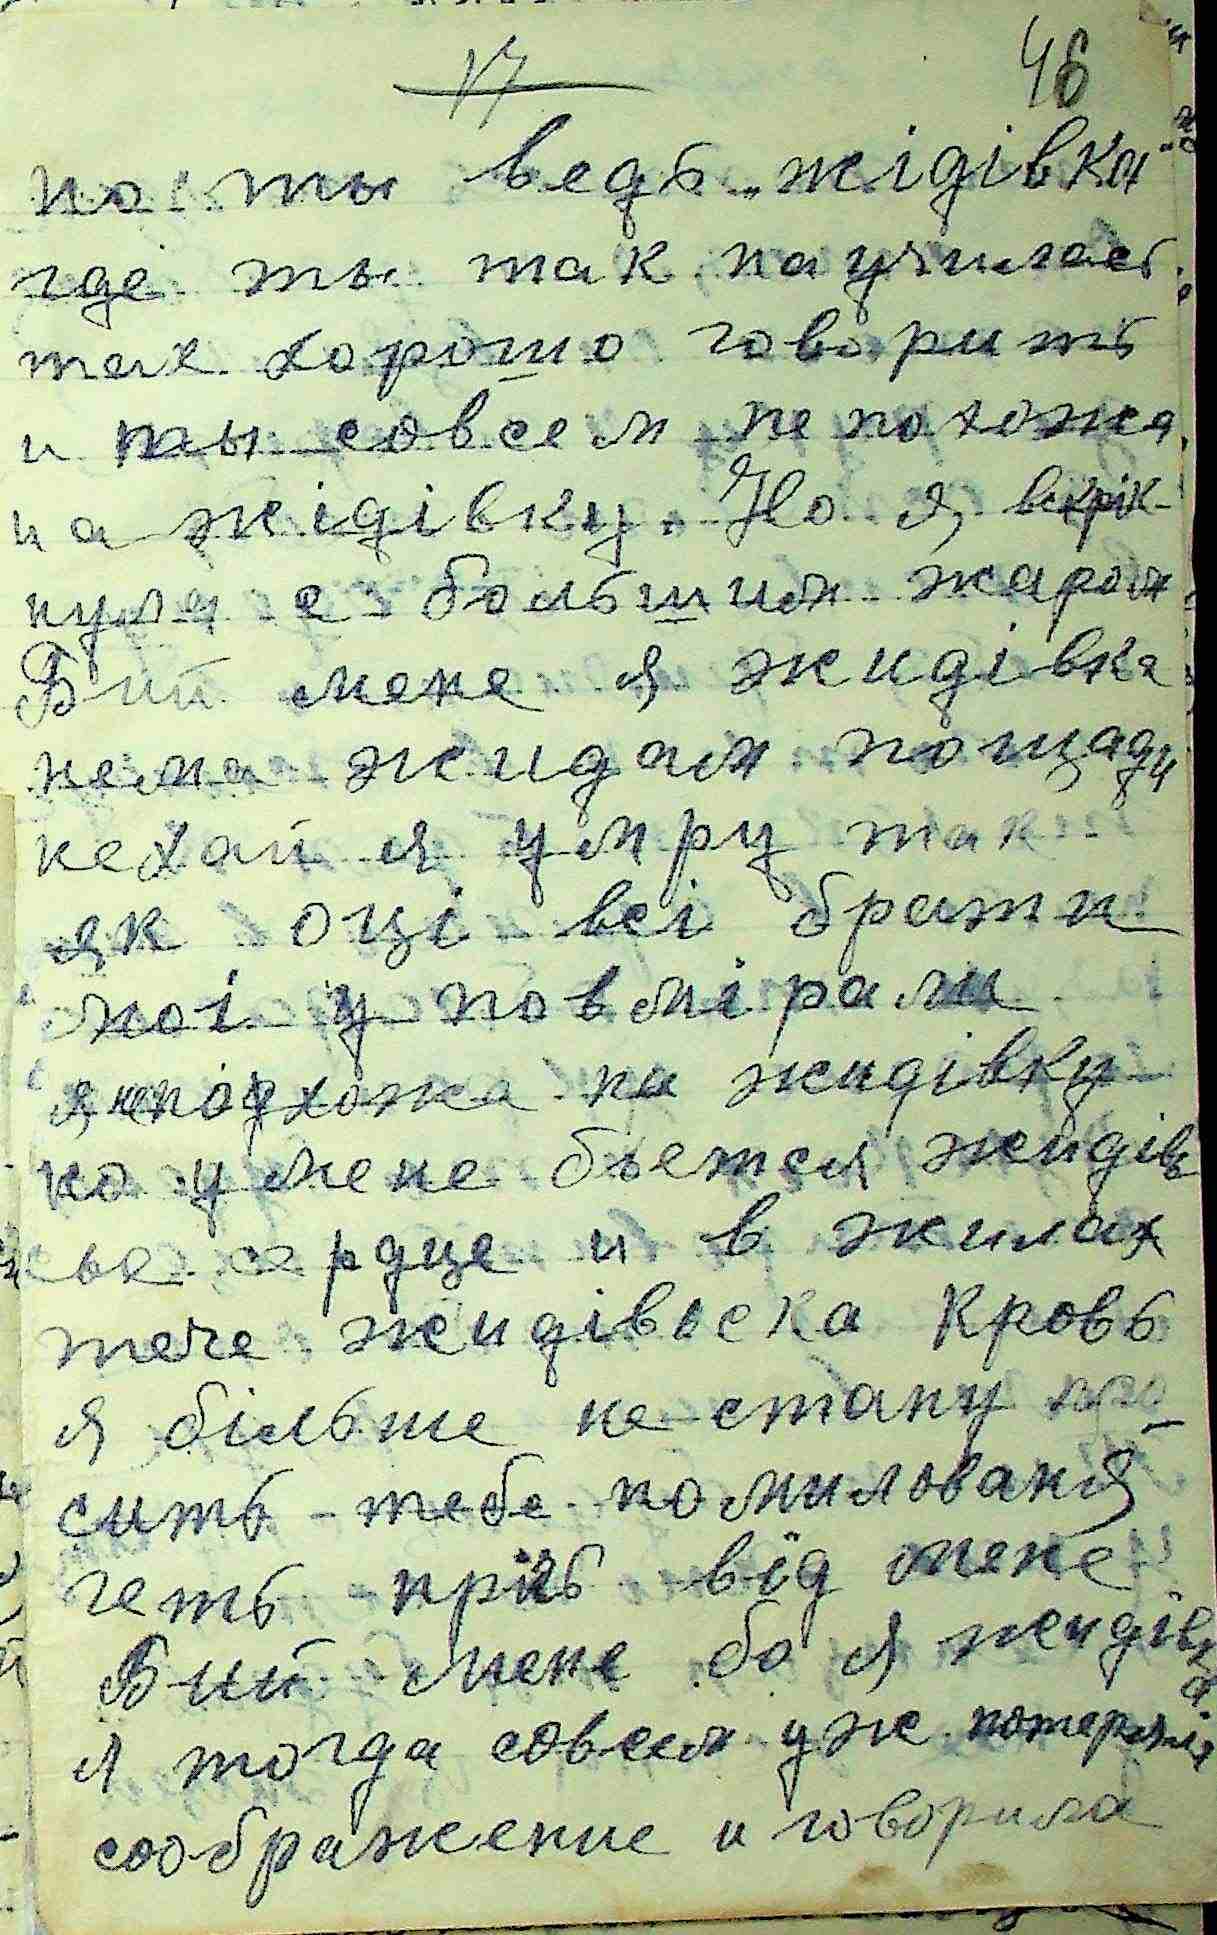 17
46
но ты ведь „жідівка"
где ты так научилась
так хорошо говорить
и ты совсем не похожа
на жідівку. Но я, вскрік-
нула с большим жаром
Бий мене я жидівка
нема жидам пощади
нехай я умру так
як оці всі брати
мої у повмірали
я непохожа на жидівку
но у мене бьется жидів
ске сердце и в жилах
тече жидівьска кровь
я більше не стану про-
сить тебе помилованя
геть пріч від мене
Бий мене бо я жидівка
я тогда совсем уже потеряла
соображение и говорила